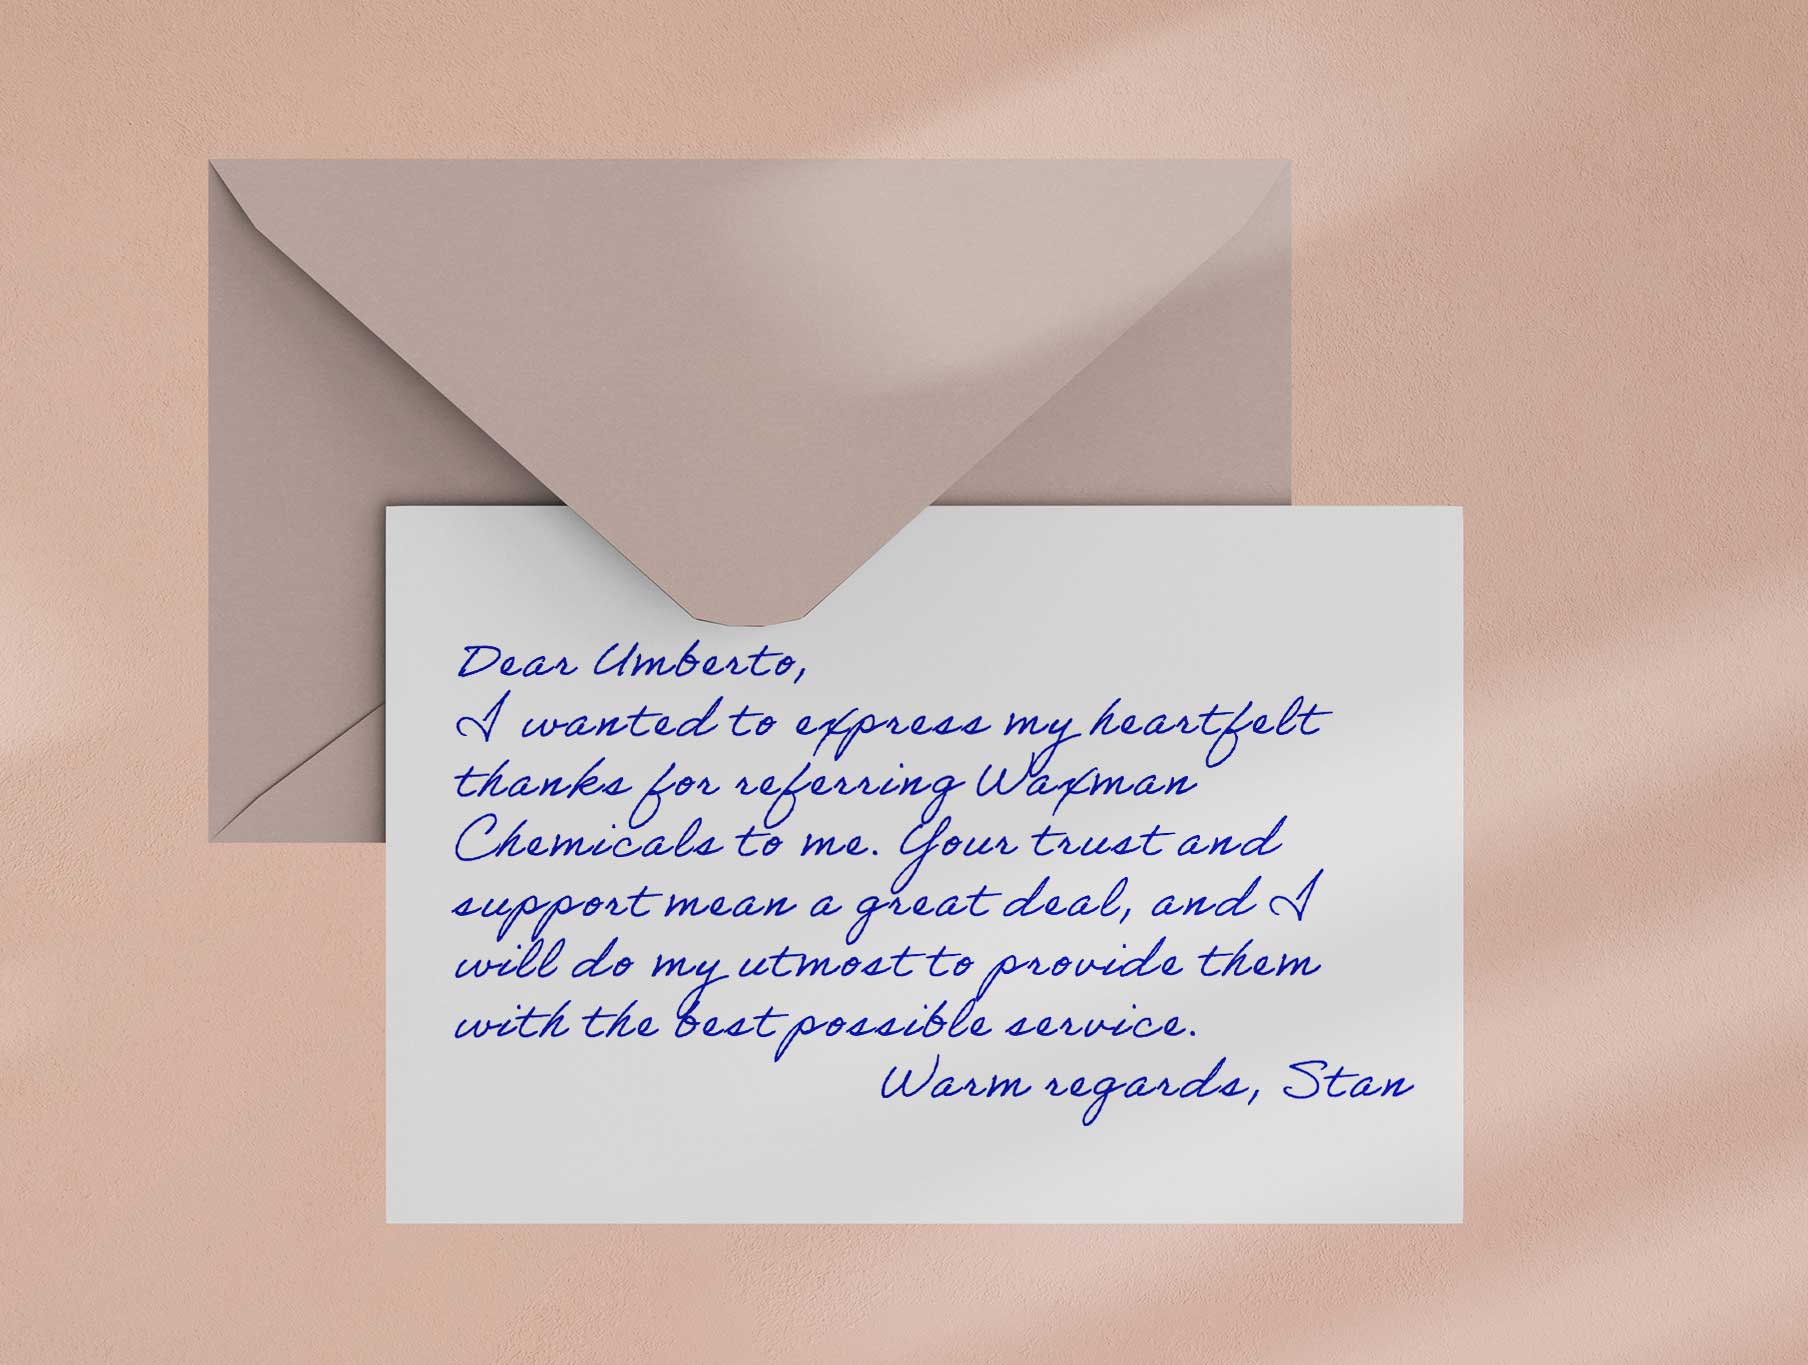 Dear Umberto,
I wanted to express my heartfelt
thanks for referring Waxman
Chemicals to me. Your trust and
support mean a great deal, and I
will do my utmost to provide them
with the best possible service.
Warm regards, Stan